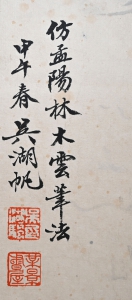 仿孟陽林木雲筆法
甲午春吳湖帆